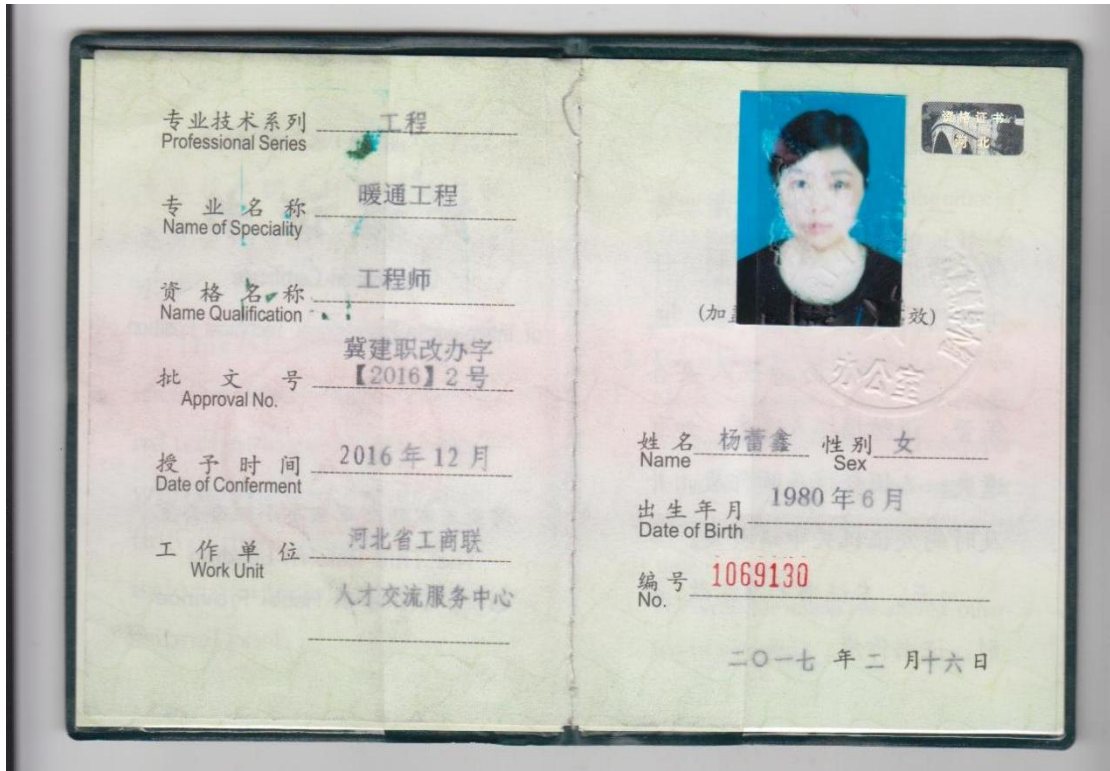 专业技术系列 工程
Professional Series
专业名称 暖通工程
Name of Speciality
资格名称 工程师
Name Qualification
冀建职改办字
批文号 【2016】2号
Approval No.
授予时间 2016年12月
Date of Conferment
工作单位 河北省工商联
Work Unit
人才交流服务中心
资格证书
河北
(加 效)
办公室
姓名 杨蕾鑫 性别 女
Name Sex
出生年月 1980年6月
Date of Birth
编号 1069130
No.
二〇一七 年 二 月十六日